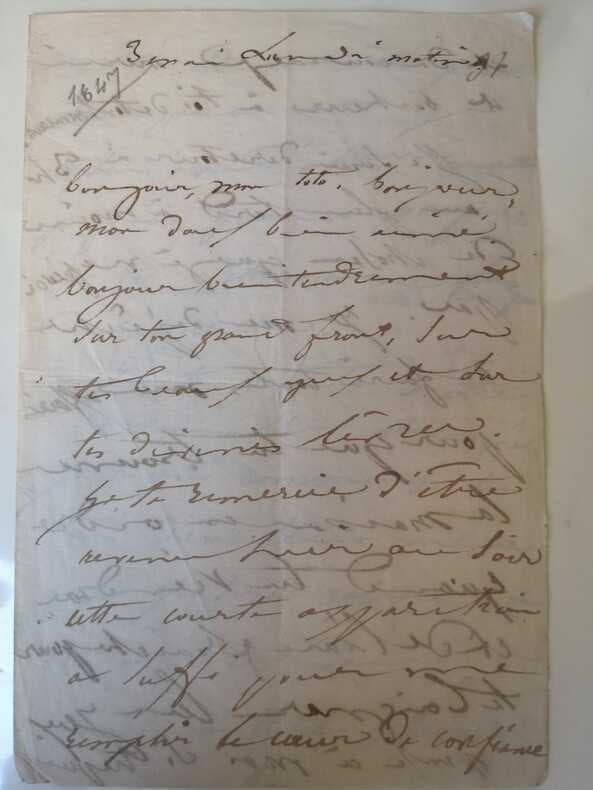 3 mai Lundi matin
1847
bonjour, mon toto, bonjour,
mon doux bien aimé,
bonjour bien tendrement
sur ton grand front, sur
tes beaux yeux et sur
tes divines lèvres.
Je te remercie d'être
revenu hier au soir
cette courte apparition
a suffi pour me
remplir le cœur de confiance